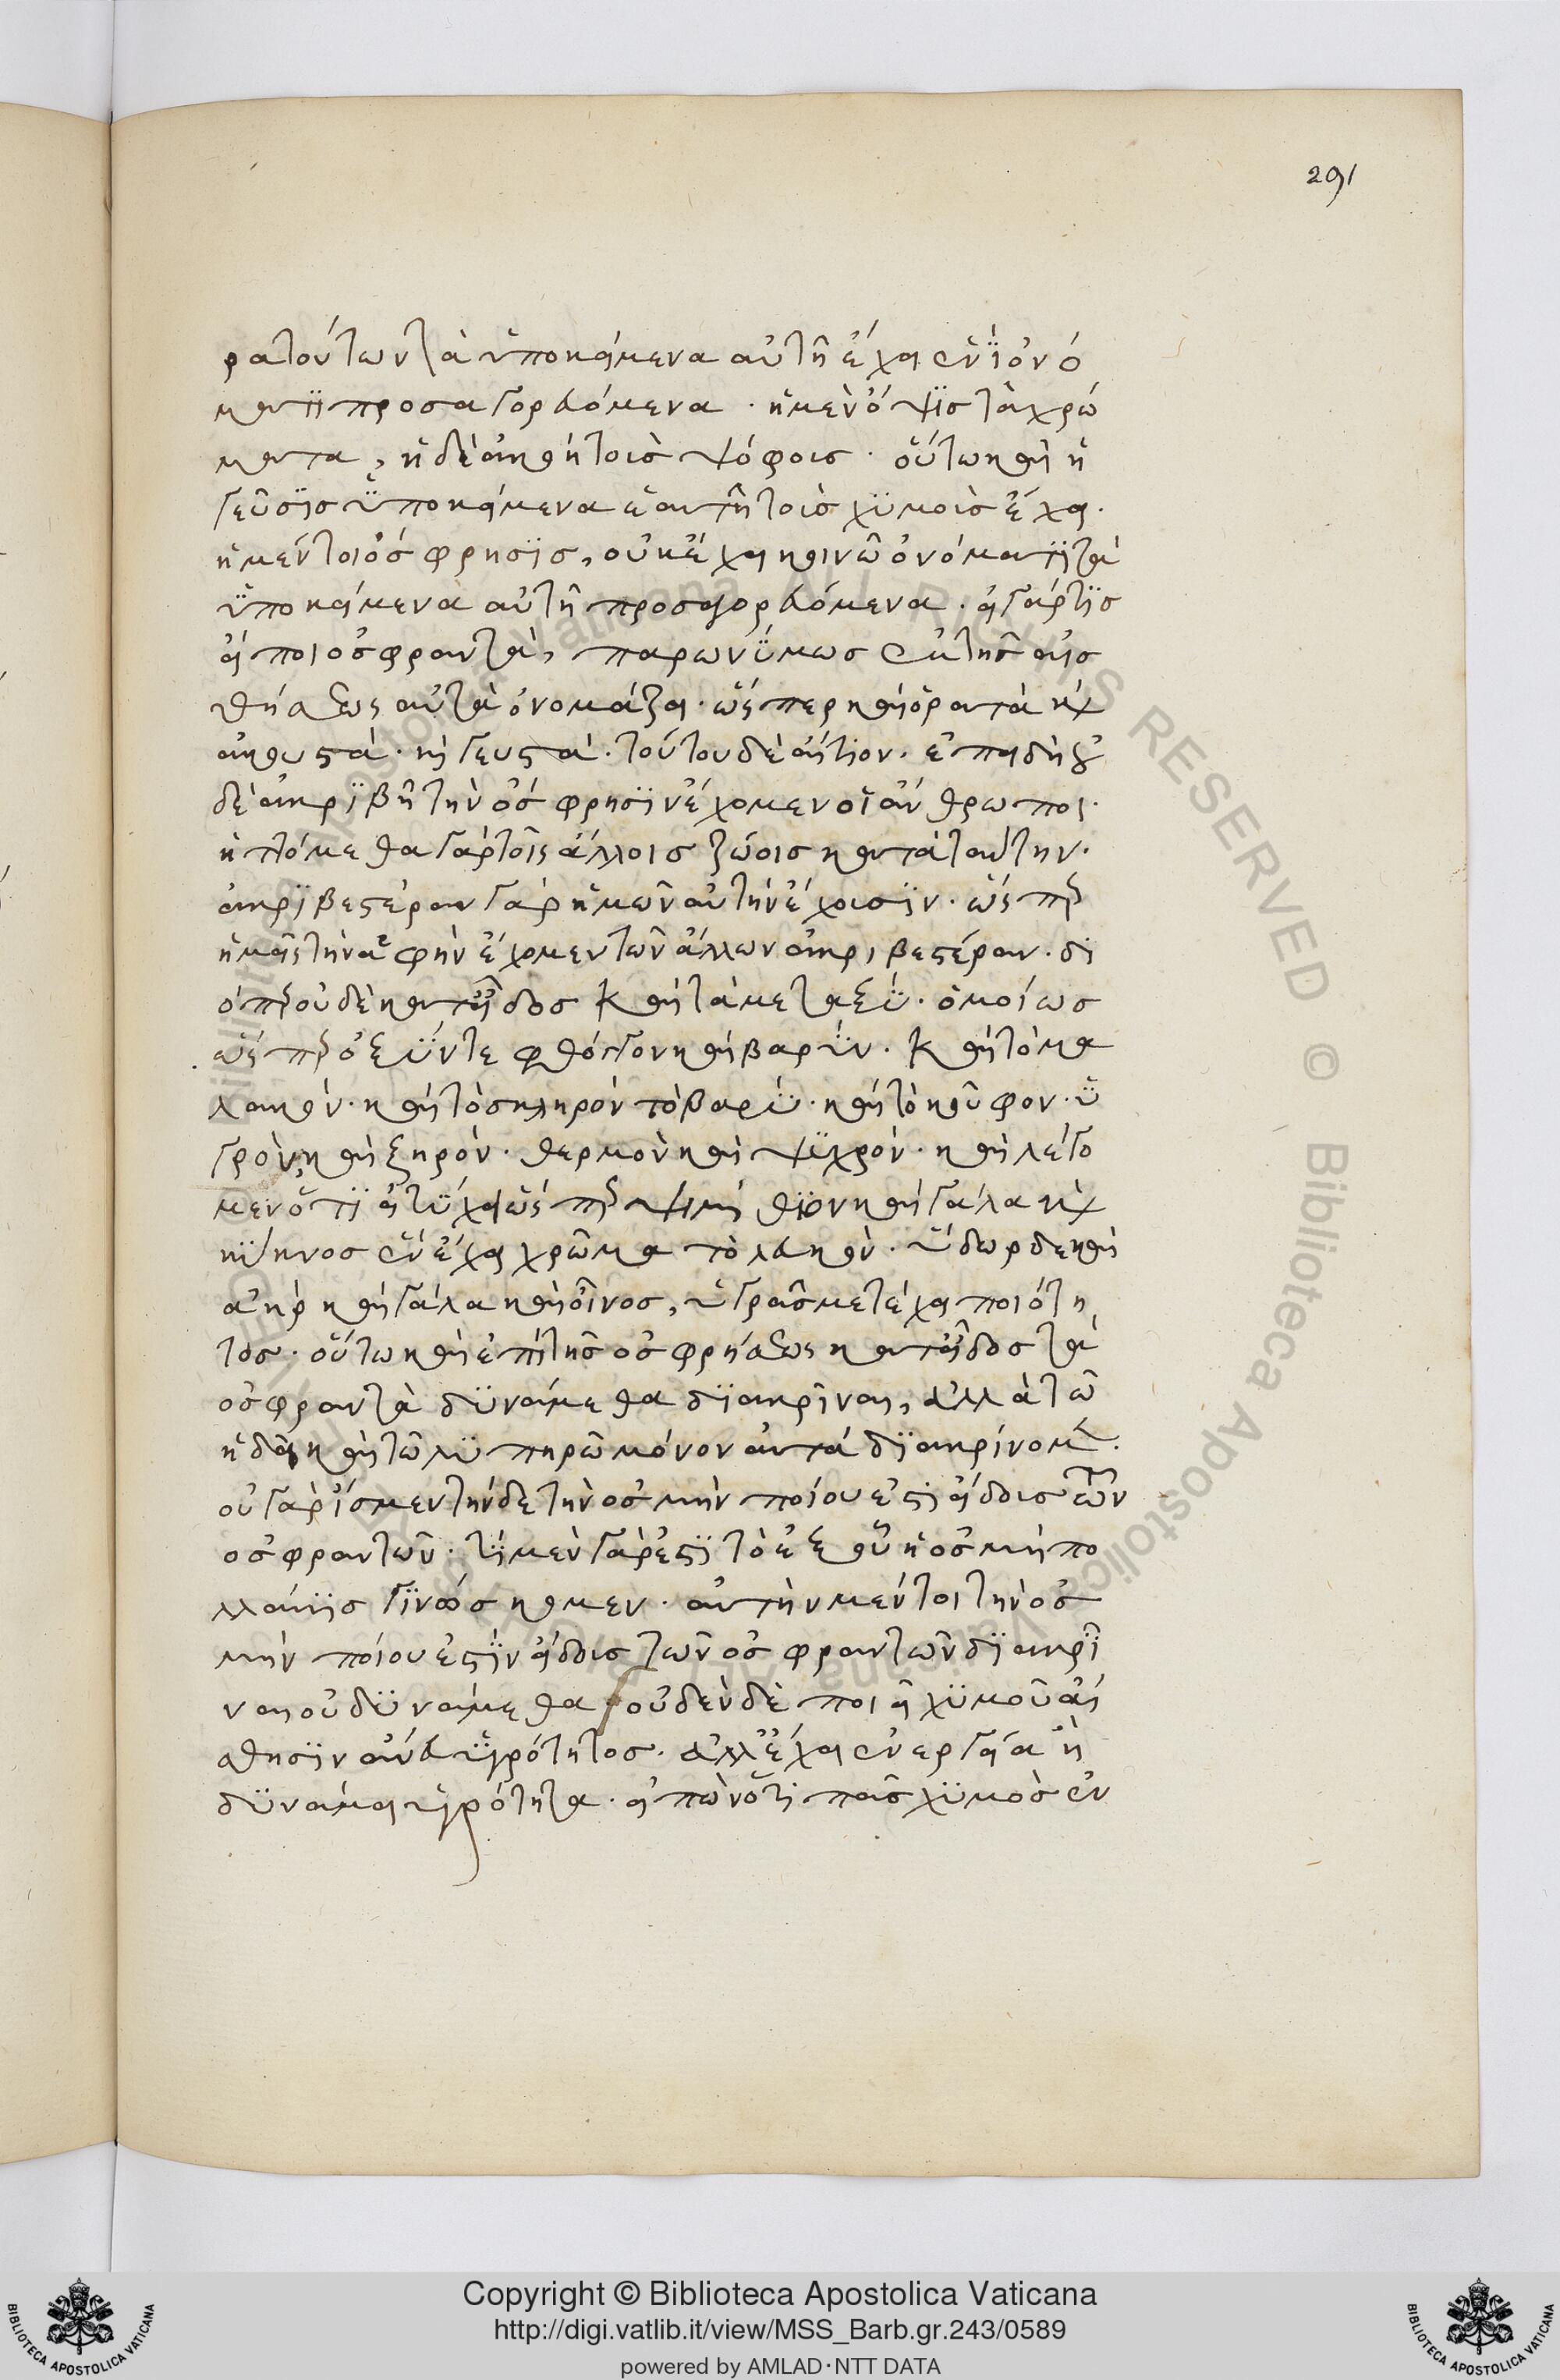 291
ρα τούτων τὰ ὑποκείμενα αὐτῆ ἔχει ἑνὶ ὀνό
ματι προσαγορευόμενα · ἡ μὲν ὄψις τὰ χρώ
ματα, ἡ δὲ ἀκοὴ τοῖς ψόφοις · οὕτω καὶ ἡ
γεῦσις ὑποκείμενα ἑαυτῆ τοῖς χυμοῖς ἔχει ·
ἡ μέντοι ὄσφρησις, οὐκ ἔχει κοινῶ ὀνόματι τὰ
ὑποκείμενα αὐτῆ προσαγορευόμενα · εἰ γάρ τις
εἴποι ὀσφραντὰ, παρωνύμως ἐκ τῆς αἰσ
θήσεως αὐτὰ ὀνομάζει · ὥσπερ καὶ ὁρατὰ καὶ
ἀκουστά · καὶ γευστά · τούτου δὲ αἴτιον · ἐπειδὴ οὐ
δὲ ἀκριβῆ τὴν ὄσφρησιν ἔχομεν οἱ ἄνθρωποι ·
ἡττόμεθα γὰρ τοῖς ἄλλοις ζώοις κατὰ ταύτην ·
ἀκριβεστέραν γὰρ ἡμῶν αὐτὴν ἔχουσιν · ὥσπερ
ἡμεῖς τὴν ἁφὴν ἔχομεν τῶν ἄλλων ἀκριβεστέραν · δι
όπερ οὐδὲ κατ' εἶδος καὶ τὰ μεταξύ · ὁμοίως
ὥσπερ ὀξύν τε φθόγγον καὶ βαρύν · καὶ τὸ μα
λακόν · καὶ τὸ σκληρόν τὸ βαρύ · καὶ τὸ κοῦφον · ὑ
γρὸν, καὶ ξηρόν · θερμὸν καὶ ψυχρόν · καὶ λέγο
μεν ὅτι εἰ τύχει ὥσπερ ψιμίθιον καὶ γάλα καὶ
κύκνος ἓν ἔχει χρῶμα τὸ λευκὸν · ὕδωρ δε καὶ
ἀὴρ καὶ γάλα καὶ οἶνος, ὑγρᾶς μετέχει ποιότη
τος · οὕτω καὶ ἐπὶ τῆς ὀσφρήσεως κατ' εἶδος τὰ
ὀσφραντὰ δυνάμεθα διακρῖναι, ἀλλὰ τῶ
ἡδεῖ καὶ τῶ λυπηρῶ μόνον αὐτά διακρίνομεν ·
οὐ γὰρ ἴσμεν τήνδε τὴν ὀσμὴν ποίου ἐστὶ εἴδους τῶν
ὀσφραντῶν · τί μὲν γάρ ἐστι τὸ ἐξ οὗ ἡ ὀσμὴ πο
λλάκις γινώσκομεν · αὐτὴν μέντοι τὴν ὀσ
μὴν ποίου ἐστὶν εἴδους τῶν ὀσφραντῶν διακρῖ
ναι οὐ δυνάμεθα οὐδὲν δὲ ποιεῖ χυμοῦ αἴ
σθησιν ἄνευ ὑγρότητος · ἀλλ' ἔχει ἐνεργεία ἢ
δυνάμει ὑγρότητα · εἰπὼν ὅτι πᾶς χυμὸς ἐν
Copyright © Biblioteca Apostolica Vaticana
http://digi.vatlib.it/view/MSS_Barb.gr.243/0589
powered by AMLAD·NTT DATA